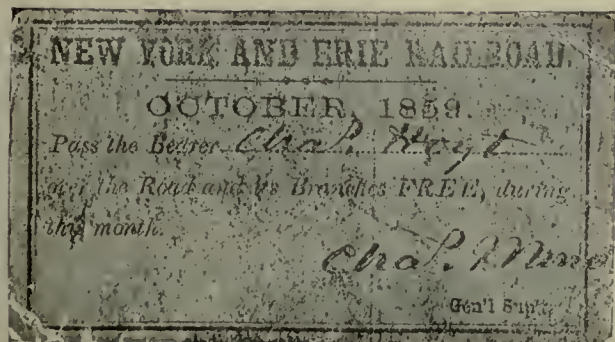 NEW YORK AND ERIE RAILROAD.
OCTOBER, 1859.
Pass the Bearer Chas. Hoyt
over the Road and its Branches FREE, during
this month.
Chas. Minot
Gen'l Sup't.